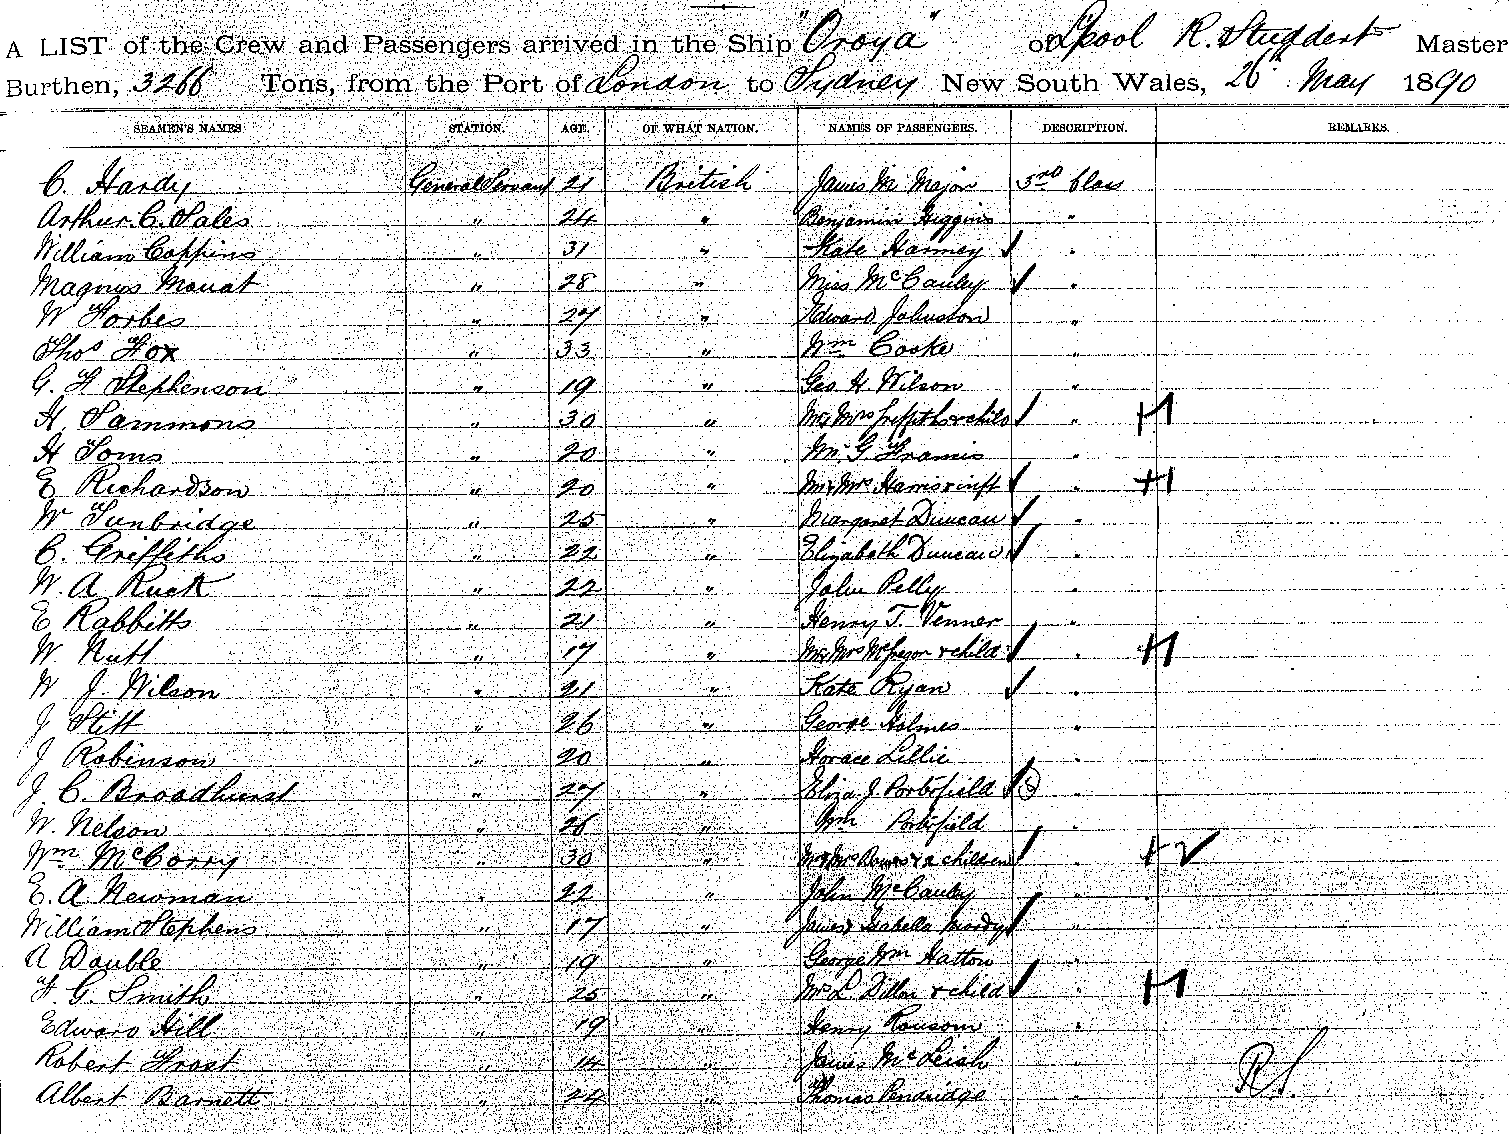 A LIST of the Crew and Passengers arrived in the Ship "Oroya" of Lpool R. Studdert Master
Burthen, 3266 Tons, from the Port of London to Sydney New South Wales, 26th May 1890
SEAMEN'S NAMES STATION. AGE. OF WHAT NATION. NAMES OF PASSENGERS. DESCRIPTION. REMARKS.
C. Hardy General Servant 21 British James M. Major 3rd Class
Arthur. C. Sales " 24 " Benjamin Higgins "
William Coppins " 31 " Kate Harmey "
Magnus Mouat " 28 " Miss McCauley "
W Forbes " 27 " Edward Johnston "
Thos Fox " 33 " Wm Cooke "
G. F Stephenson " 19 " Geo H. Wilson "
H. Sammons " 30 " Mr & Mrs Griffiths & child " +1
H Toms " 20 " Mr. G Framis "
E Richardson " 20 " Mr & Mrs Harris & inft " +1
W Tunbridge " 25 " Margaret Duncan "
C. Griffiths " 22 " Elizabeth Duncan "
W. A Ruck " 22 " John Pelly "
E Rabbitts " 21 " Henry T. Venner "
W Nutt " 17 " Mr & Mrs McGregor & child " +1
W J. Wilson " 21 " Kate Ryan "
J Stitt " 26 " George Holmes "
J Robinson " 20 " Horace Lillie "
J. C. Broadhurst " 27 " Eliza J. Portofield S "
W. Nelson " 26 " Wm Portofield "
Wm McCorry " 30 " Mr & Mrs & 2 children " +2
E. A Newman " 22 " John McCauley "
William Stephens " 17 " James & Isabella Moody "
A Double " 19 " George Wm Hatton "
F G. Smith " 25 " Mrs L Dillon & child " +1
Edward Hill " 19 " Henry Ransom "
Robert Frost " 14 " James McLeish "
Albert Barnett " 24 " Thomas Pendridge "
RS.